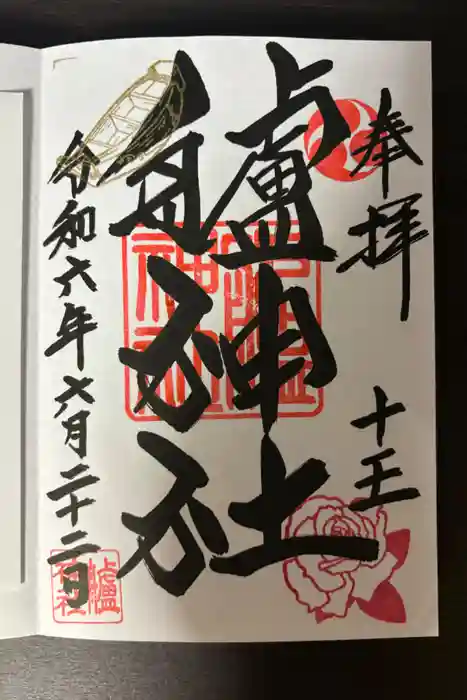 奉拝
十王
艫神社
令和六年六月二十二日
艫
神社
艫
神社